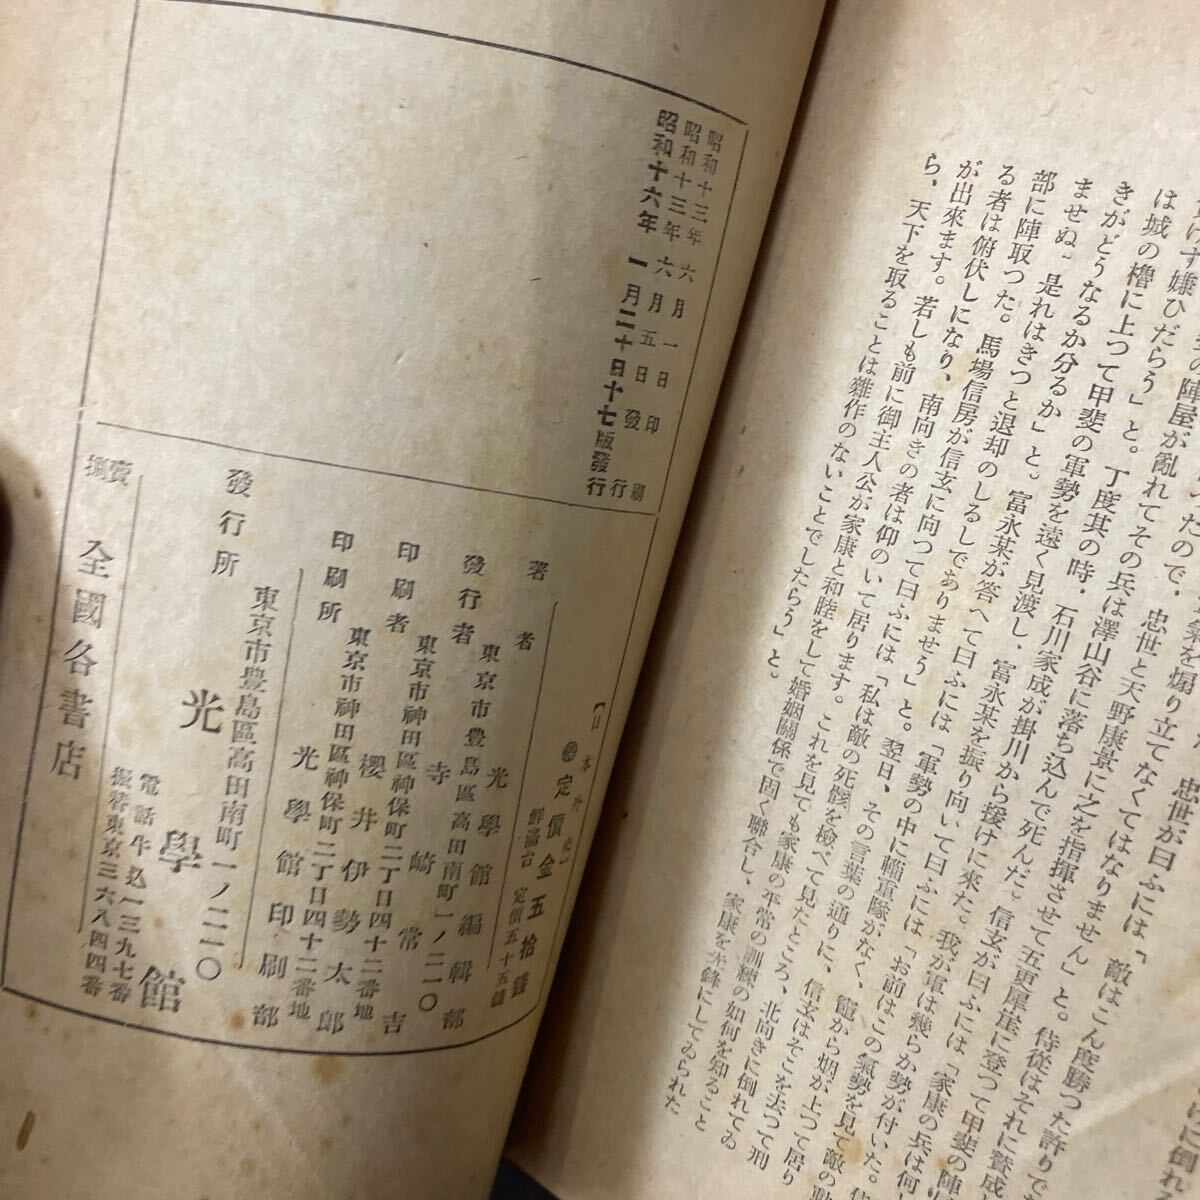 け す嫌ひだらう」と。丁度其の時、石川家成が掛川から援けに來た。我が軍は幾らか勢が付いた。
は城の櫓に上つて甲斐の軍勢を遠く見渡し、富永某を振り向いて曰ふには「お前はこの氣勢を見て敵の動
きがどうなるか分るか」と。富永某が答へて曰ふには「軍勢の中に輜重隊がなく、竈から烟が上つて居り
ませぬ。是れはきつと退却のしるしでありませう」と。翌日、その言葉の通りに、信玄はそこを去つて刑
部に陣取つた。馬場信房が信玄に向つて曰ふには「私は敵の死骸を檢べて見たところ、北向きに倒れてゐ
る者は俯伏しになり、南向きの者は仰のいて居ります。これを見ても家康の平常の訓練の如何を知ること
が出來ます。若しも前に御主人公が家康と和睦をして婚姻關係で固く聯合し、家康を先鋒にしてゐられた
ら、天下を取ることは雜作のないことでしたらう」と。
昭和十三年六月一日印刷
昭和十三年六月五日發行
昭和十六年一月二十日十七版發行
【日本外史】
定價金五拾錢
鮮滿台 定價五十五錢
著者 光學館編輯部
東京市豊島區高田南町一ノ二一〇
發行者 寺崎常吉
東京市神田區神保町二丁目四十二番地
印刷者 櫻井伊勢太郎
東京市神田區神保町二丁目四十二番地
印刷所 光學館印刷部
發行所
東京市豊島區高田南町一ノ二一〇
光學館
電話牛込一三九七番
振替東京三六八四四番
賣捌 全國各書店